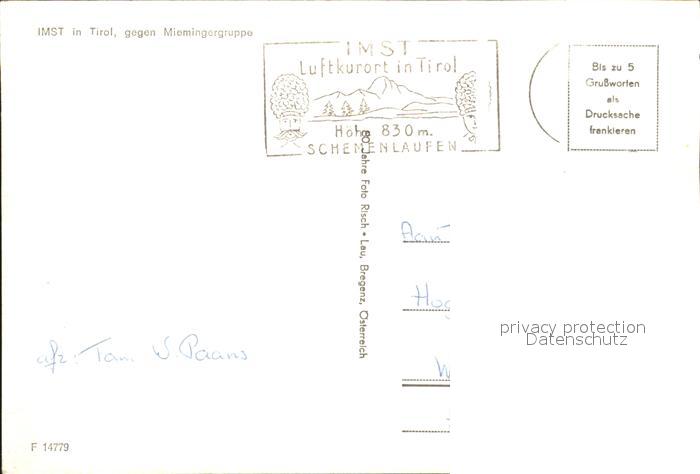 IMST in Tirol, gegen Miemingergruppe
IMST
Luftkurort in Tirol
Höhe 830 m.
SCHEMENLAUFEN
Bis zu 5
Grußworten
als
Drucksache
frankieren
80 Jahre Foto Risch-Lau, Bregenz, Österreich
Hog
W
privacy protection
Datenschutz
afz: Tam. W. Paans
F 14779